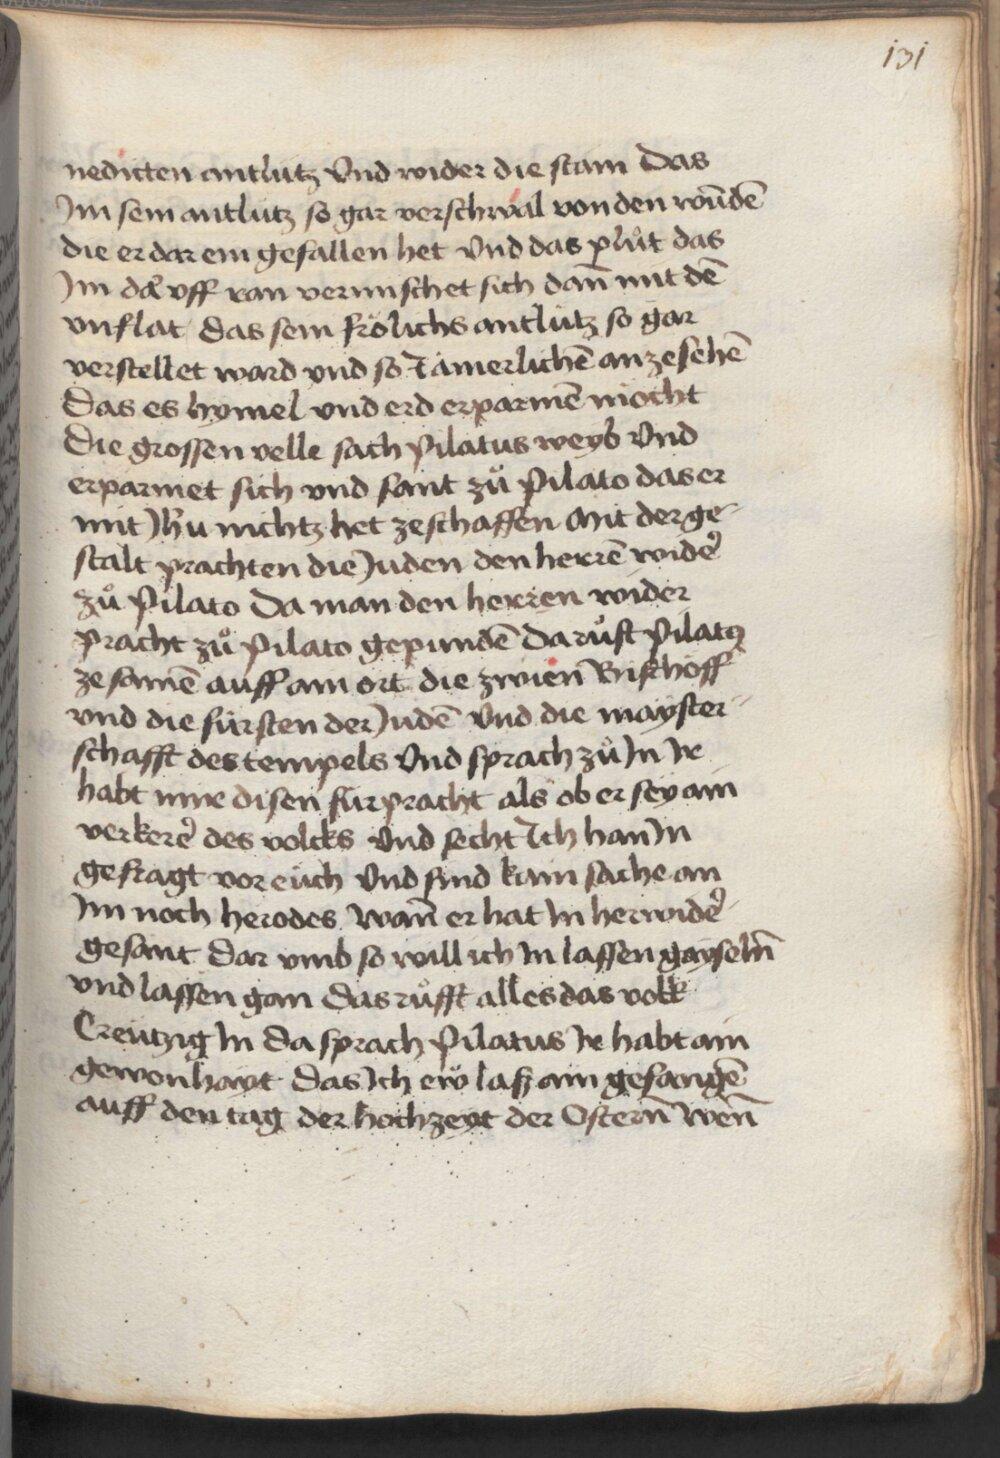 131
nedicten antlutz Vnd wider die stain Das
Im sein antlutz so gar verschwal von den wūdē
die er dar ein gefallen het Vnd das plůt das
Im dar vff ran vermischet sich dañ mit dē
vnflat das sein frölichs antlütz so gar
verstellet ward vnd so Jamerlichē an ze sehē
Das es hymel vnd erd erparmē mocht
Die grossen velle sach Pilatus weyb Vnd
erparmet sich vnd sant zů Pilato das er
mit Jhu nichtz het ze schaffen Mit der ge-
stalt prachten die Juden den herrē wider
zů Pilato Da man den herren wider
pracht zů Pilato gepundē Da růft Pilatus
ze samē auff ain ort die zwien Bischoff
vnd die fürsten der Judē Vnd die mayster-
schafft des tempels Vnd sprach zů In Ir
habt mir disen für pracht als ob er sey ain
verkerer des volcks Vnd secht Ich han In
gefragt vor eüch Vnd find kain sache an
Im noch herodes Wañ er hat In herwider-
gesant Dar vmb so will ich In lassen gayseln
vnd lassen gan Das růfft alles das volk
Creützig In Da sprach Pilatus Ir habt ain
gewonhayt Das Ich ew laß ain gefangē
auff den tag der hochzeyt der Ostern Wen̄